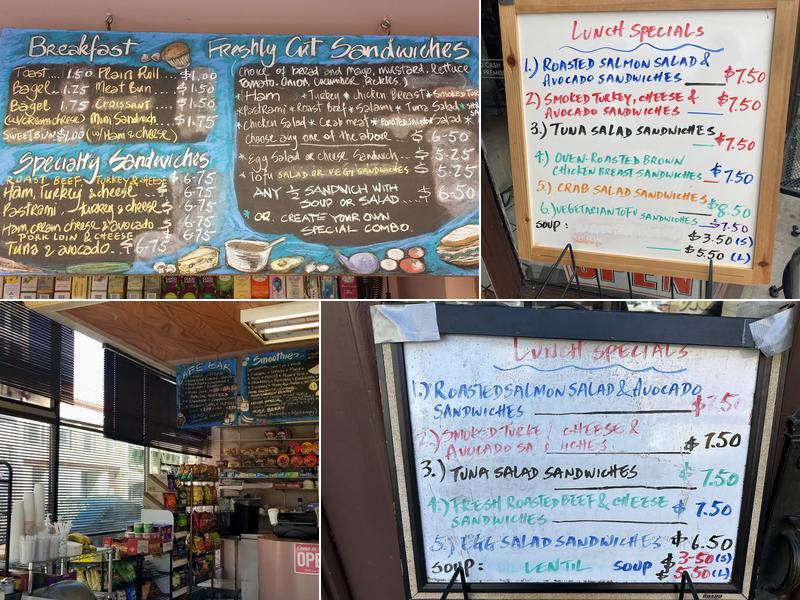 Breakfast
Toast... 1.50 Plain Roll... $1.00
Bagel 1.75 Meat Bun... $1.50
Bagel 1.75 Croissant... $1.50
(w/Cream cheese) Mini Sandwich. $1.75
SWEET BUN $1.00 (w/Ham & cheese)
Specialty Sandwiches
ROAST BEEF TURKEY & CHEESE $ 6-75
Ham, Turkey & cheese... $ 6.75
Pastrami, turkey & cheese $ 6.75
Ham, cream cheese & avocado. $ 6.75
PORK LOIN & CHEESE
Tuna & avocado.. $ 6-75
Freshly Cut Sandwiches
Choice of bread and mayo, mustard, lettuce
Tomato, Onion, Cucumber, Pickles)
*Ham * Turkey * chicken Breast *Smoked
*Pastrami * Roast Beef * Salami * Tuna Salad
*Chicken Salad * Crab meat * ROASTED SALMON Salad *
Choose any one of the above.. $ 6-50
*Egg Salad or cheese Sandwich... $ 5-25
*Tofu SALAD OR VEGI SANDWICHES $ 5-25
ANY ½ SANDWICH WITH
SOUP OR SALAD.... $ 6-50
*OR. CREATE YOUR OWN
SPECIAL COMBO.
LUNCH SPECIALS
1.) ROASTED SALMON SALAD &
AVOCADO SANDWICHES $7.50
2) SMOKED TURKEY, CHEESE &
AVOCADO SANDWICHES $7.50
3.) TUNA SALAD SANDWICHES
$7.50
4.) OVEN-ROASTED BROWN
CHICKEN BREAST SANDWICHES $7.50
5.) CRAB SALAD SANDWICHES $8.50
6.) VEGETARIAN TOFU SANDWICHES $7.50
SOUP: $3.50 (S)
$5.50 (L)
OPEN
CAFE BAR
Smoothies
Come in
OPE
LUNCH SPECIALS
1.) ROASTED SALMON SALAD & AVOCADO
SANDWICHES $7.50
2.) SMOKED TURKE CHEESE &
AVOCADO SA ICHES $ 7.50
3.) TUNA SALAD SANDWICHES $ 7.50
4.) FRESH ROASTED BEEF & CHEESE
SANDWICHES $ 7.50
5.) EGG SALAD SANDWICHES $ 6.50
SOUP: LENTIL SOUP $ 3-50 (S)
$ 5-50 (L)